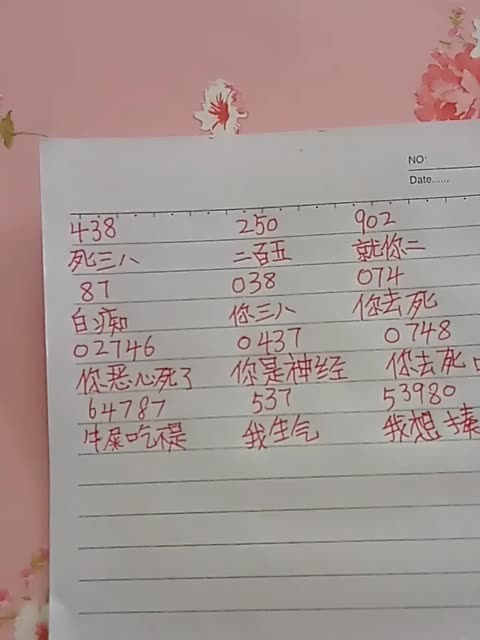 NO:
Date......
438 250 902
死三八 二百五 就你二
87 038 074
白痴 你三八 你去死
02746 0437 0748
你恶心死了 你是神经 你去死
64787 537 53980
牛屎吃 我生气 我想揍